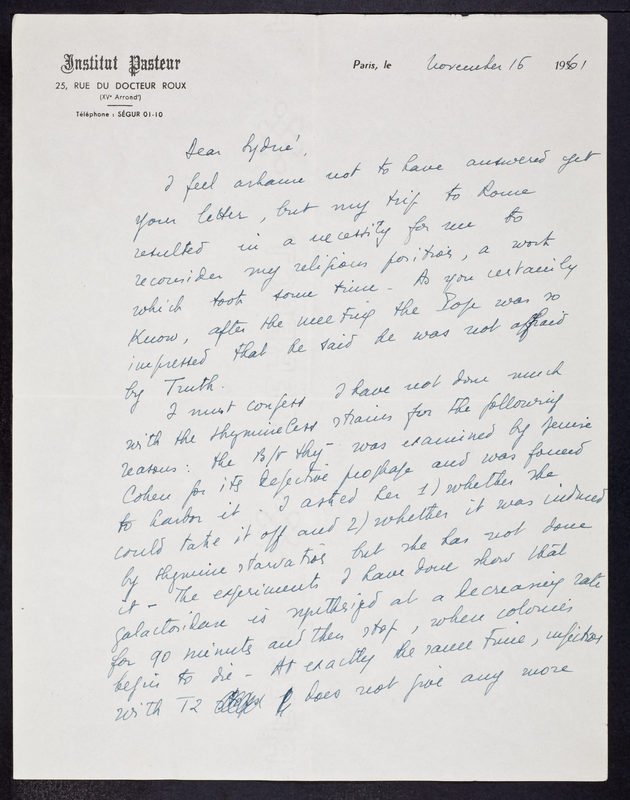 Institut Pasteur
25, RUE DU DOCTEUR ROUX
(XVe Arrondt)
Téléphone : SÉGUR 01-10
Paris, le November 15 1961
Dear Sydné,
I feel ashame not to have answered yet
your letter, but my trip to Rome
resulted in a necessity for me to
reconsider my religious position, a work
which took some time - As you certainly
know, after the meeting the Pope was so
impressed that he said he was not affraid
by Truth.
I must confess I have not done much
with the thymineless strains for the following
reasons: the B/r thy- was examined by Jenine
Cohen for its defective prophage and was founed
to harbor it. I asked her 1) whether she
could take it off and 2) whether it was induced
by thymine starvation but she has not done
it - The experiments I have done show that
galactosidase is synthesized at a decreasing rate
for 90 minutes and then stop, when colonies
begin to die - At exactly the same time, infection
with T2 does not give any more